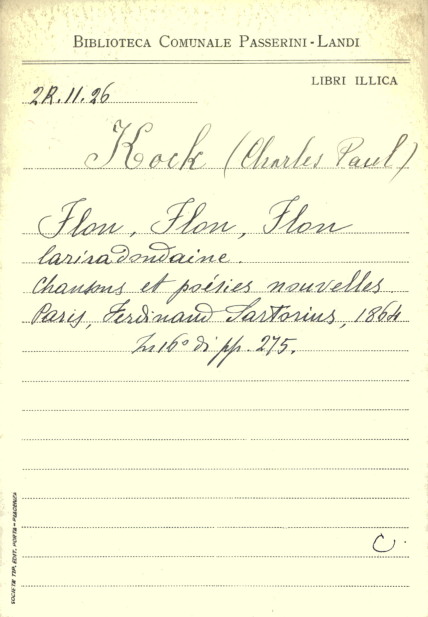 BIBLIOTECA COMUNALE PASSERINI-LANDI
LIBRI ILLICA
2R.11.26
Kock (Charles Paul)
Flon, Flon, Flon
lariradondaine.
Chansons et poésies nouvelles.
Paris, Ferdinand Sartorius, 1864
In 16° di pp. 275.
C.
SOCIETÀ TIP. EDIT. PORTA - PIACENZA